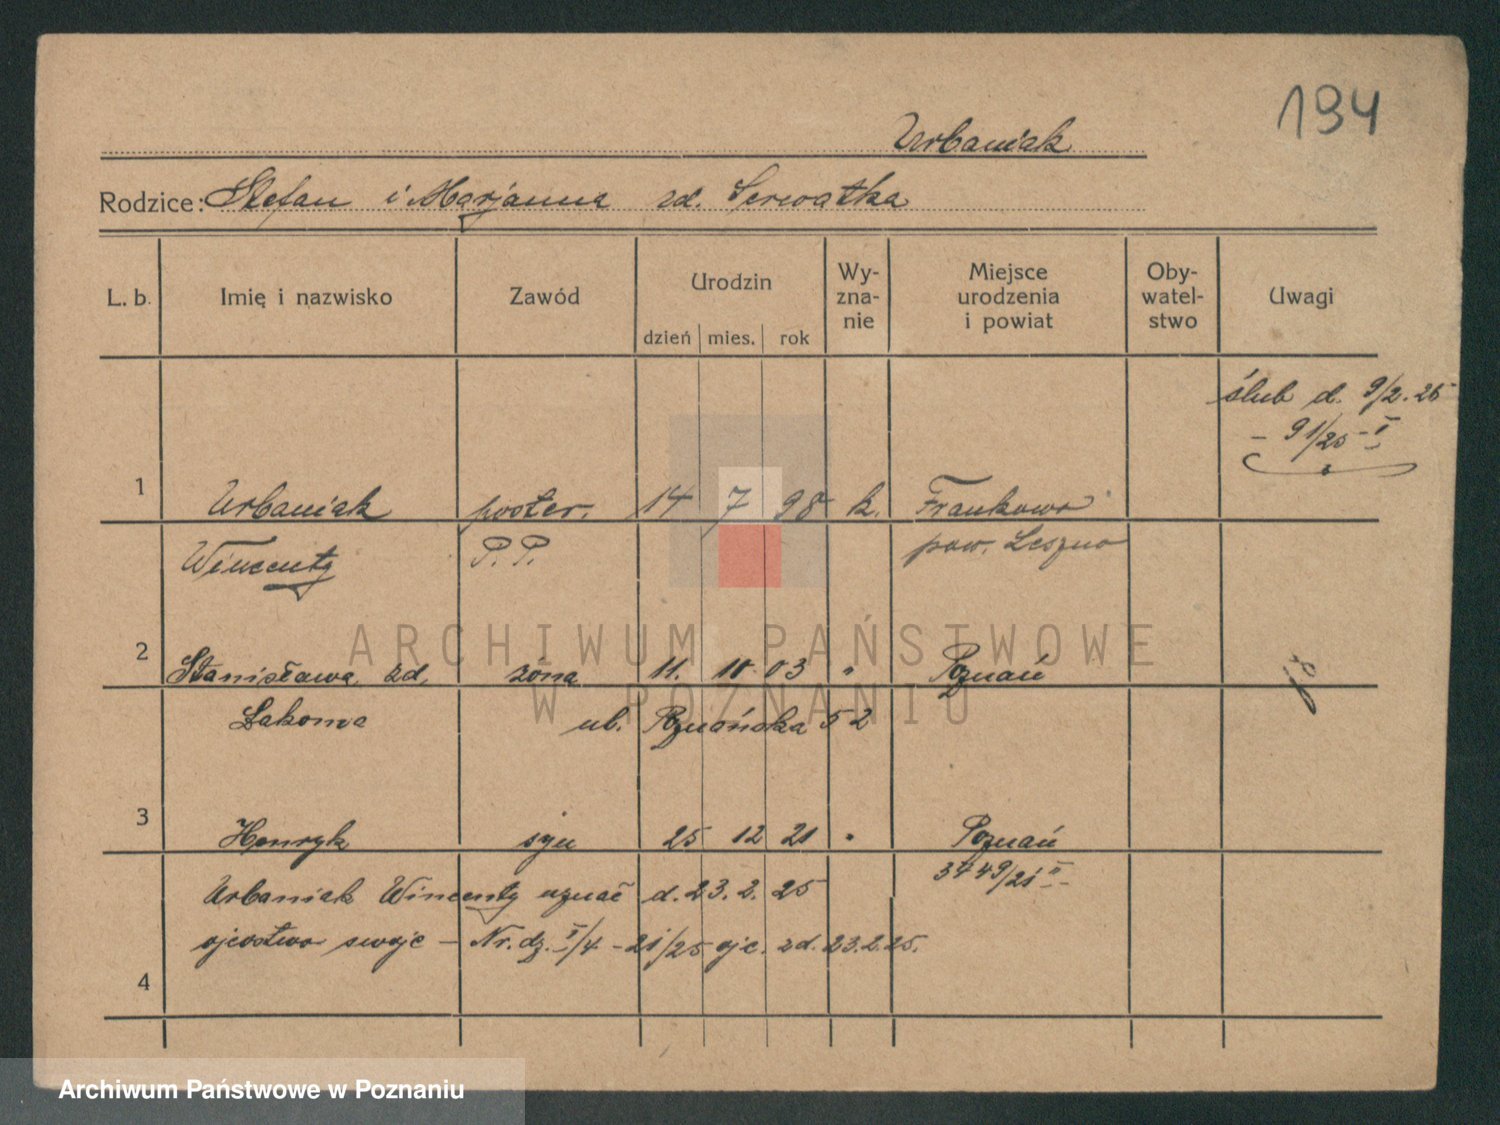 194
Urbaniak
Rodzice: Stefan i Marjanna zd. Serwatka
L. b. Imię i nazwisko Zawód Urodzin dzień mies. rok Wy-zna-nie Miejsce urodzenia i powiat Oby-watel-stwo Uwagi
ślub d. 9/2. 25
– 91/25 – I
1 Urbaniak poster. 14 7 98 k. Frankowo
Wincenty P. P. pow. Leszno
2 Stanisława zd. żona 11. 10 03 " Poznań
Łakoma ul. Poznańska 52
3 Henryk syn 25 12 21 " Poznań
3449/21 II
Urbaniak Wincenty uznał d. 23. 2. 25
ojcostwo swoje – Nr. dz. I/4 – 21/25 ojc. zd. 23.2.25.
4
ARCHIWUM PAŃSTWOWE
W POZNANIU
Archiwum Państwowe w Poznaniu